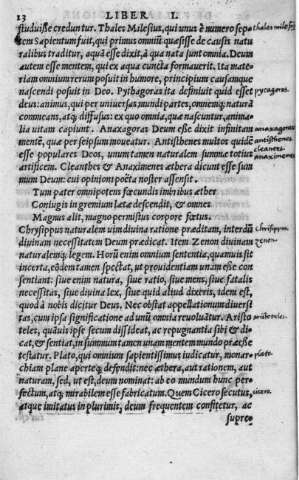 23 LIBER I.
studuisse creduntur. Thales Milesius, qui unus è numero sepa thales miles.
tem Sapientum fuit, qui primus omniū quæsisse de causis natu
ralibus traditur, aquā esse dixit, à qua nata sunt omnia. Deum
autem esse mentem, qui ex aqua cuncta formauerit. Ita mate-
riam omnium rerum posuit in humore, principium causamque
nascendi posuit in Deo. Pythagoras ita definiuit quid esset pytagoras.
deus: animus, qui per uniuersas mundi partes, omnemq́; naturā
commeans, atq́; diffusus: ex quo omnia, quæ nascuntur, anima-
lia uitam capiunt. Anaxagoras Deum esse dixit infinitam anaxagoras
mentē, quæ per seipsum moueatur. Antisthenes multos quidē antisthenes
esse populares Deos, unum tamen naturalem summæ totius cleantes.
artificem. Cleanthes & Anaximenes æthera dicunt esse sum anaximenes
mum Deum: cui opinioni poëta noster assensit.
Tum pater omnipotens fœcundis imbribus æther
Coniugis in gremium lætæ descendit, & omnes
Magnus alit, magno permistus corpore fœtus.
Chrysippus naturalem uim diuina ratione præditam, interdū chrysippus.
diuinam necessitatem Deum prædicat. Item Zenon diuinam zenon.
naturalemq́; legem. Horū enim omnium sententia, quamuis sit
incerta, eòdem tamen spectat, ut prouidentiam unam esse con
sentiant. siue enim natura, siue ratio, siue mens, siue fatalis
necessitas, siue diuina lex, siue quid aliud dixeris, idem est,
quod à nobis dicitur Deus. Nec obstat appellationum diuersi-
tas, cum ipsa significatione ad unū omnia reuoluātur. Aristo aristoteles.
teles, quāuis ipse secum dissideat, ac repugnantia sibi & di-
cat, & sentiat, in summum tamen unam mentem mundo præesse
testatur. Plato, qui omnium sapientissimus iudicatur, monar- plato.
chiam plane aperteq́; defendit: nec æthera, aut rationem, aut
naturam, sed, ut est, deum nominat: ab eo mundum hunc per-
fectum, atq́; mirabilem esse fabricatum. Quem Cicero secutus, cicero.
atque imitatus in plurimis, deum frequentem confitetur, ac
supre-